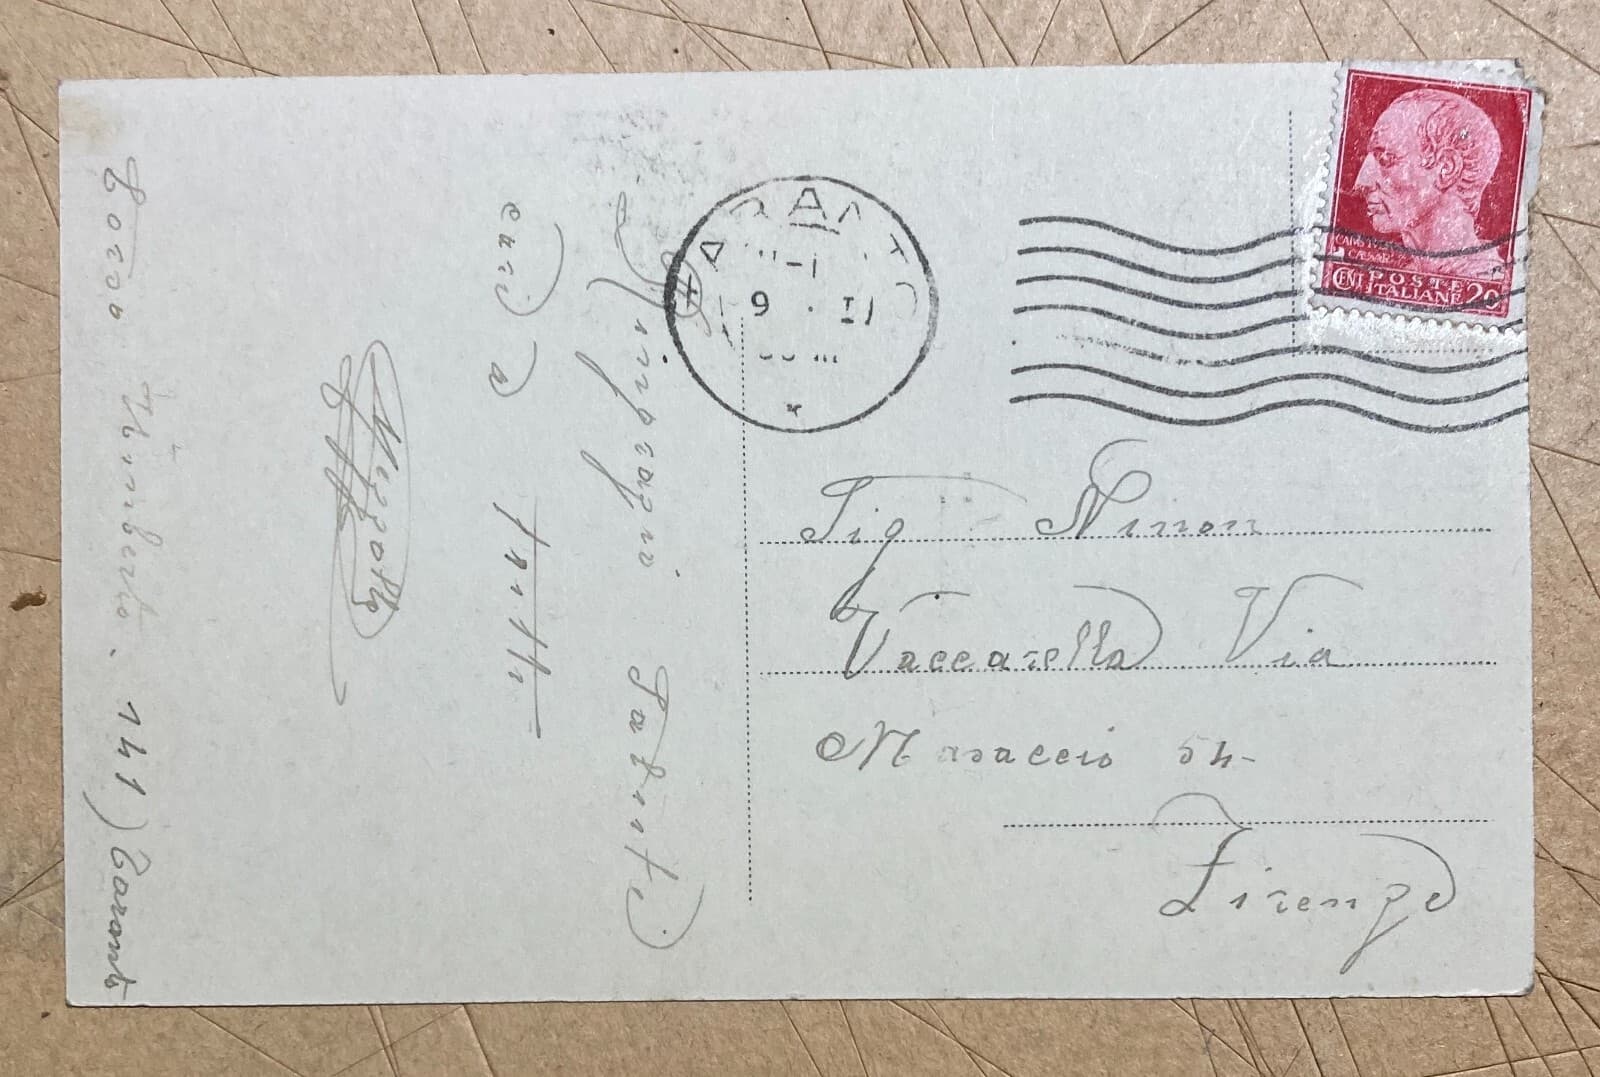 Ringrazio Saluti
cari a
tutti
Corso Umberto. 141) Taranto
TARANTO
9
CENT 20
POSTE
ITALIANE
Sig Ninon
Vaccarella Via
Masaccio 54-
Firenze